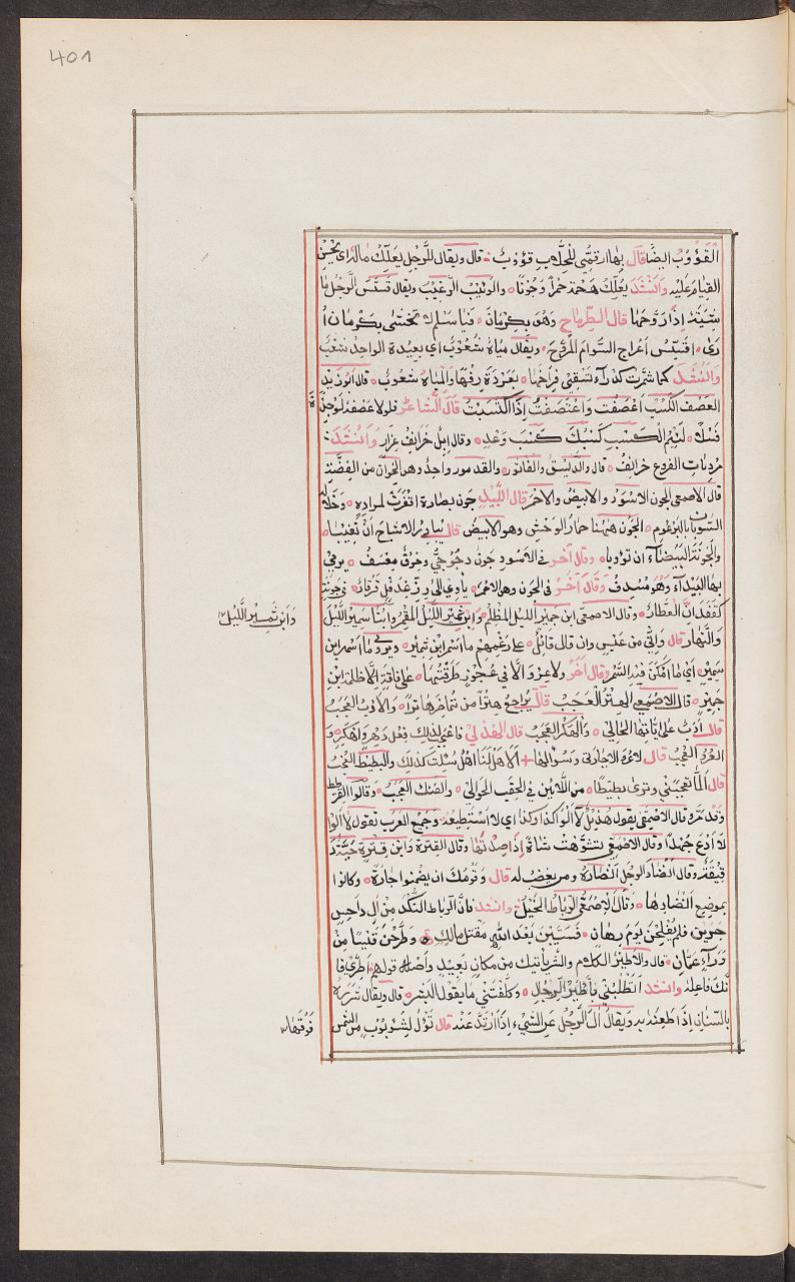 401
القَؤُوبُ ايضًا قال بها ارتقى للحلاب قؤوبُ قال ويقال للرّجل يَعلِكُ مالَهُ اى يحسِنُ
القيامَ عليه وَانشد يَعلِكُ هَجمة حمرًا وجُونًا والوَغيب الرّغيب ويقال قَسقس الرّجل ما
شِيَتَهُ اِذا رَوَّحَها قال الطّرِمّاح وَهوَ بكرمان فيا سَلم لا تخشى بكرمان ا
رى اقسّس اعراج السّوام المروّح ويقال مياهٌ شُعُوبٌ اى بعيدة الواحد شَعْبٌ
وَانشد كما شمّرت كدرآء تسقى فراخها بعَردةَ رِفهًا والمياهُ شعوبُ قال ابو زيد
العَصف الكسْب اعصفت وَاعتصفتُ اِذا اكتسبت قال الشاعر فلولا عصفهُ لوجدتَ
فَسْلًا لئيمَ الكسْبِ كسبُكَ كسْب وَعدِ وقال اِبل خَرَايف غزار وانشد
مردنات الفروع خرايفُ قال والدّيسق والفاثور والقدمور واحدٌ وهو الخوان من الفضّة
قال الاصمعى الجون الاسوَد والابيضُ والاحمر قال اللّبيد جون بصارة اقفرت لمراده وَخلا له
السّوبان فالبرعوم الجون ههُنا حمارُ الوحش وهو الابيض قال يبادر الاشباح ان تغيبا
والجونة البيضآء ان تؤوبا وقال آخر فى الاسود جون دجُوجىٌّ وخَرقٌ معسَفُ يرمى
بها البَيدآء وهو مُسدِفُ وقال آخر فى الجون وهو الاحمر فى جَونةٍ
كقفَدان العطّار وقال الاصمعى ابن جمير الليل المظلم وَابن نمير اللّيل المقمر وَابنا سمير اللّيل
وَابن ثمير اللّيل
والنّهار قال وإنّى من عبسٍ وان قال قائلٌ على رغمهم ما اثمر ابن ثمير ويروى ما اسمر ابن
سمير اى ما امكن فيه السّمر وقال آخر ولا غرو اِلّا فى عجوز طرقتها على فاقة اِلّا ظلمة ابن
جمير قال الاصمعى الهتر العجب قال يراجع هترًا من تماضر هاترا وَالادب العجب
قال ادبٌ على لبّاتها الحالى والهكر العجب قال الهذلى فاعجب لذلك فعل دهرٍ واهكر و
الغرو العجب قال لا غرو الّا جارتى وسؤالها الا هل لنا اهلٌ سُئلت كذلك والبطيط العجب
قال المّا تعجبى وترى بطيطًا من اللّائين فى الحقب الخوالى والضنك العجب وقالوا القرطط
وقد تقدّم قال الاصمعى يقول هذيل لا آلوا كذا وكذا اى لا استطيعه وجميع العرب تقول لا آلوا
لا ادع جهدًا وقال الاصمعى لتشوّهت شاةً اِذا صدتها وقال القترة وَابن قترة حيّة
وقال انضاد الرجل انصاره ومن يغضب له قال وَقومك ان يضمنوا جارةً وكانوا
بموضع انضادها وقال الاصمعى الوباط الخيبة وانشد فانّ الوباط النّكد من آل داحس
جرين فلم يفلحن يوم رهان فسبّبن بعد الله مقتل مالك وطرّحن قيسًا من
وَرآء عمان قال والاطير الكلام والشّر يأتيك من مكان بعيد وأصله قولهم اطرّى فا
نّك ناعله وانشد اتطلبنى باطير الرجال وكلّفتنى ما يقول البشر قال ويقال شزره
بالسّنان اِذا طعنه به ويقال ألّ الرّجل عن الشىء اِذا ارتدّ عنه قال تؤل لشؤبوب من الشمس
فوقها